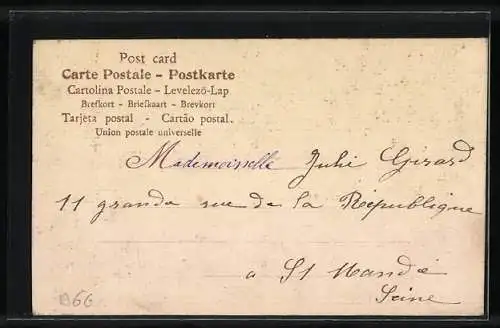 Post card
Carte Postale - Postkarte
Cartolina Postale - Levelező-Lap
Brefkort - Briefkaart - Brevkort
Tarjeta postal - Cartão postal.
Union postale universelle
Mademoiselle Julie Girard
11 grande rue de la République
a St Mandé
Seine
B66